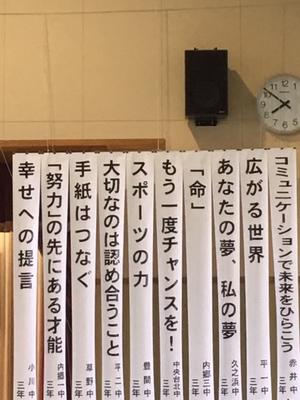 コミュニケーションで未来をひらこう
赤井中
三年
広がる世界
平一中
三年
あなたの夢、私の夢
久之浜中
三年
「命」
内郷三中
三年
もう一度チャンスを！
中央台北中
三年
スポーツの力
豊間中
三年
大切なのは認め合うこと
平二中
三年
手紙はつなぐ
草野中
三年
「努力」の先にある才能
内郷一中
三年
幸せへの提言
小川中
三年